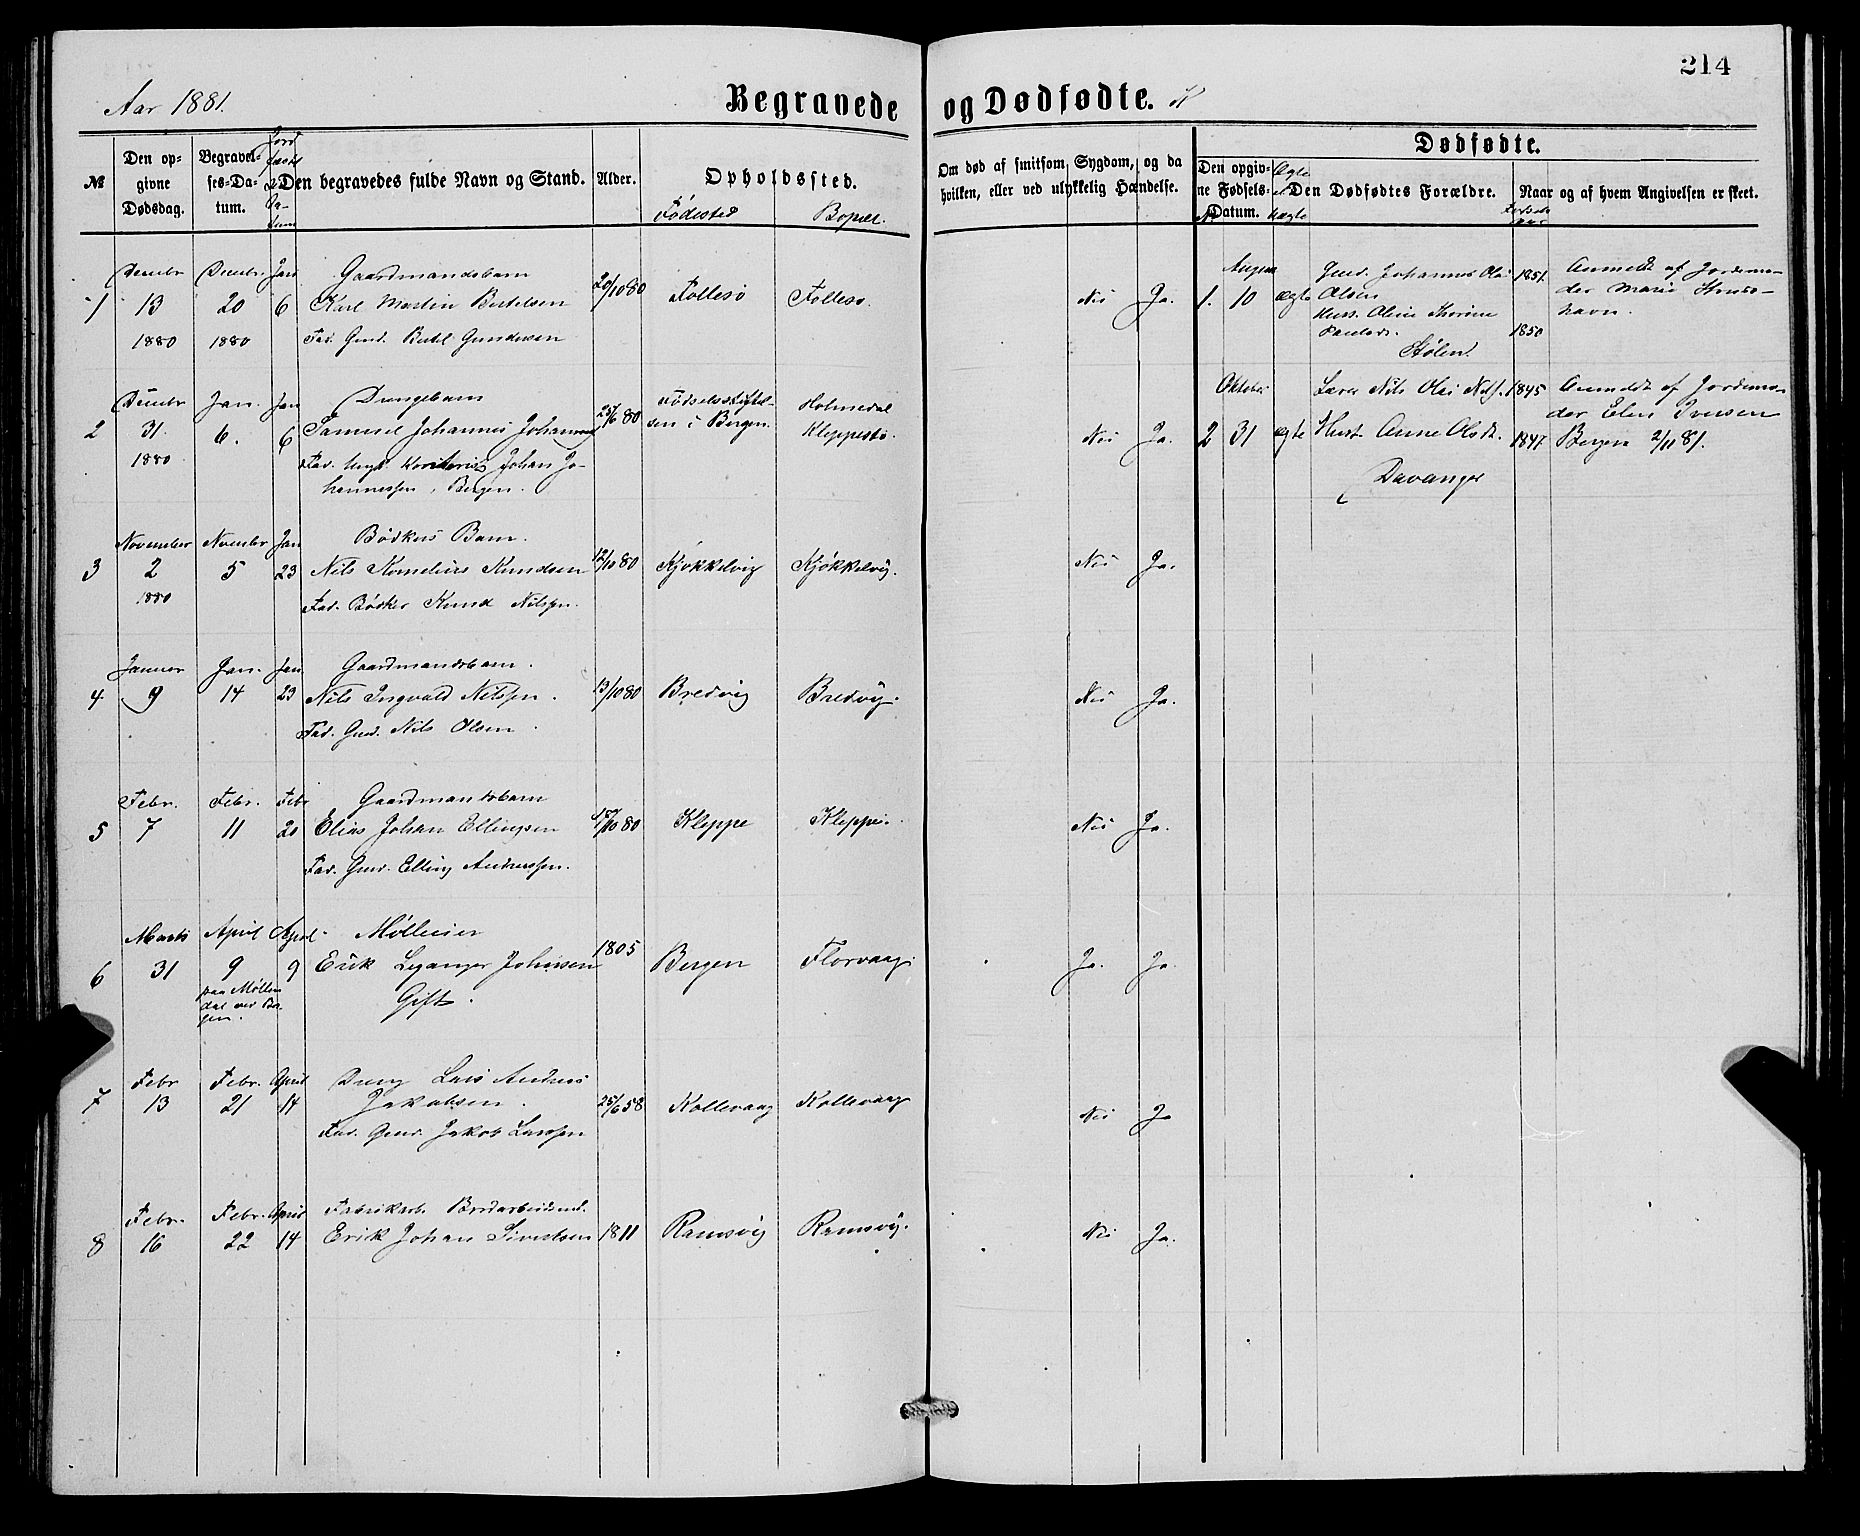 214
Aar 1881.
Begravede og Dødfødte.
№
Den opgivne Dødsdag.
Begravelses-Datum.
Den begravedes fulde Navn og Stand.
Alder.
Opholdssted.
Fødested
Bopæl.
Om død af smitsom Sygdom, og da hvilken, eller ved ulykkelig Hændelse.
Dødfødte.
Den opgivne Fødsels-Datum.
Ægte
uægte
Den Dødfødtes Forældre.
Naar og af hvem Angivelsen er skeet.
1
13
1880
20
1880
Jan
6
Gaardmandsbarn
Karl Martin Bertelsen
Fad. Gmd. Bertel Gundersen
20/10 80
Follesø
Follesø.
Nei
Ja.
2
31.
1880
Jan.
6.
Jan
6
Drengebarn
Samuel Johannes Johannes
Johan Jo-
hannessen, Bergen.
25/6 80
Fødselsstiftel-
sen i Bergen.
Holmedal
Kleppestø.
Nei
Ja.
3
November
2
1880
November
5
Jan
23
Bødkers Barn.
Nils Kornelius Knudsen
Fad. Bødker Knud Nilssen.
12/10 80
Kjøkkelvig
Kjøkkelvig.
Nei
Ja.
4
Januar
9
Jan.
14
Jan
23
Gaardmandsbarn.
Nils Ingvald Nilssen.
Fad. Gmd. Nils Olsen.
13/10 80
Bredvig
Bredvig.
Nei
Ja.
5
Febr.
7
Febr.
11
Febr
20
Gaardmandsbarn
Elias Johan Ellingsen
Fad. Gmd. Elling Andreassen.
/10 80
Kleppe
Kleppe.
Nei
Ja.
6
Marts
31
April
9
paa Møllen-
dal ved Ber-
gen.
April
9
Mølleeier
Erik Leganger Johnsen
Gift.
1805
Bergen
Florvaag.
Ja.
Ja.
7
Febr
13
Febr.
21
April
14
Dreng Lars Andreas
Jakobsen.
Fad. Gmd. Jakob Larssen
25/6 58
Kollevaag
Kollevaag
Nei
Ja
8
Febr.
16
Febr.
22
April
14
Erik Johan Sivertsen
1811
Ramsvig
Ramsvig.
Nei
Ja.
1.
August
10
ægte
Gmd. Johannes Olai
Olsen
Hust. Oline Thorine
Paulsd.
Stølen.
1851.
1850
Anmeldt af Jordemo-
der Marie
havn.
2
Oktober
31
ægte
Lærer Nils Olai Nils.
Hust. Anne Olsdt.
Davanger
1845
1847.
Anmeldt af Jordemo-
der Elen Iversen
Bergen 2/11 81.